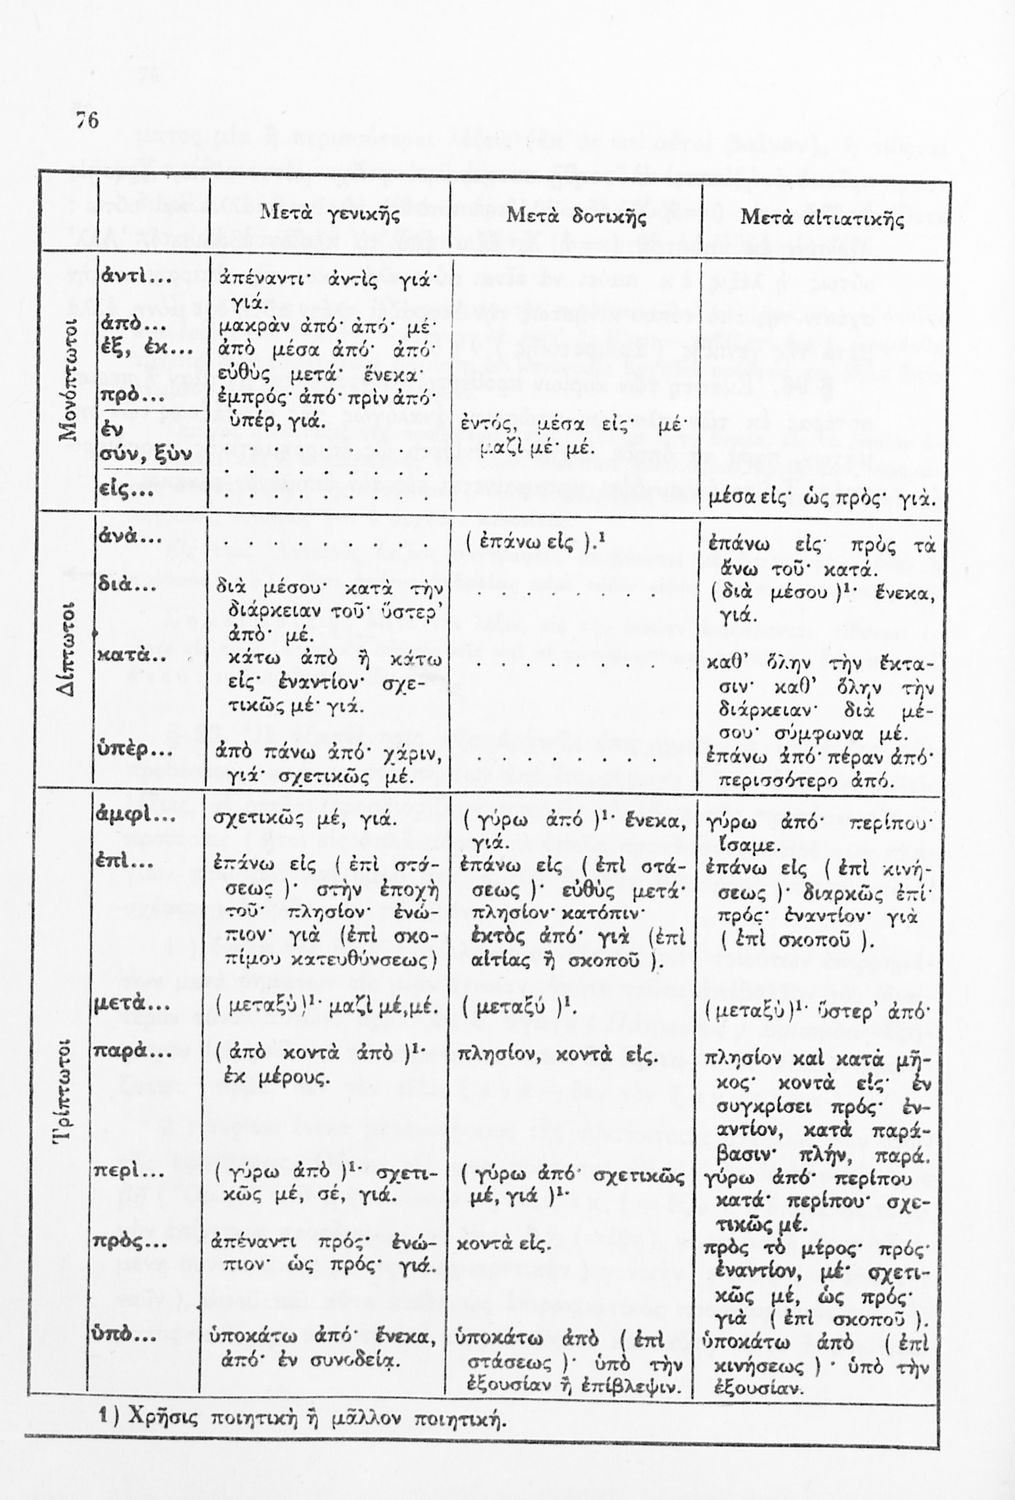 76
Μετὰ γενικῆς
Μετὰ δοτικῆς
Μετὰ αἰτιατικῆς
Μονόπτωτοι
ἀντὶ...
ἀπέναντι· ἀντὶς γιά·
γιά.
ἀπὸ...
μακρὰν ἀπό· ἀπό· μέ·
ἐξ, ἐκ...
ἀπὸ μέσα ἀπό· ἀπό·
εὐθὺς μετά· ἕνεκα·
πρὸ...
ἐμπρός· ἀπό· πρὶν ἀπό·
ὑπέρ, γιά.
ἐν
ἐντός, μέσα εἰς· μέ·
σύν, ξὺν
μαζὶ μέ· μέ.
. . . . . . . . .
εἰς...
. . . . . . . . .
μέσα εἰς· ὡς πρὸς· γιὰ.
Δίπτωτοι
ἀνὰ...
. . . . . . . . .
( ἐπάνω εἰς ).¹
ἐπάνω εἰς· πρὸς τὰ
ἄνω τοῦ· κατά.
διὰ...
διὰ μέσου· κατὰ τὴν
διάρκειαν τοῦ· ὕστερ’
ἀπὸ· μέ.
. . . . . . . .
( διὰ μέσου )¹· ἕνεκα,
γιά.
κατὰ..
κάτω ἀπὸ ἢ κάτω
εἰς· ἐναντίον· σχε-
τικῶς μέ· γιά.
. . . . . . . .
καθ’ ὅλην τὴν ἔκτα-
σιν· καθ’ ὅλην τὴν
διάρκειαν· διὰ μέ-
σου· σύμφωνα μέ.
ὑπὲρ...
ἀπὸ πάνω ἀπό· χάριν,
γιά· σχετικῶς μέ.
. . . . . . . .
ἐπάνω ἀπό· πέραν ἀπό·
περισσότερο ἀπό.
Τρίπτωτοι
ἀμφὶ...
σχετικῶς μέ, γιά.
( γύρω ἀπό )¹· ἕνεκα,
γιά.
γύρω ἀπό· περίπου·
ἴσαμε.
ἐπὶ...
ἐπάνω εἰς ( ἐπὶ στά-
σεως )· στὴν ἐποχὴ
τοῦ· πλησίον· ἐνώ-
πιον· γιὰ (ἐπὶ σκο-
πίμου κατευθύνσεως)
ἐπάνω εἰς ( ἐπὶ στά-
σεως )· εὐθὺς μετά·
πλησίον· κατόπιν·
ἐκτὸς ἀπό· γιὰ (ἐπὶ
αἰτίας ἢ σκοποῦ ).
ἐπάνω εἰς ( ἐπὶ κινή-
σεως )· διαρκῶς ἐπί·
πρός· ἐναντίον· γιὰ
( ἐπὶ σκοποῦ ).
μετὰ...
( μεταξὺ)¹· μαζὶ μέ,μέ.
( μεταξύ )¹.
(μεταξὺ)¹· ὕστερ’ ἀπό·
παρὰ...
( ἀπὸ κοντὰ ἀπὸ )¹·
ἐκ μέρους.
πλησίον, κοντὰ εἰς.
πλησίον καὶ κατὰ μῆ-
κος· κοντὰ εἰς· ἐν
συγκρίσει πρός· ἐν-
αντίον, κατὰ παρά-
βασιν· πλήν, παρά.
περὶ...
( γύρω ἀπὸ )¹· σχετι-
κῶς μέ, σέ, γιά.
( γύρω ἀπό· σχετικῶς
μέ, γιά )¹·
γύρω ἀπό· περίπου
κατά· περίπου· σχε-
τικῶς μέ.
πρὸς...
ἀπέναντι πρός· ἐνώ-
πιον· ὡς πρός· γιά.
κοντὰ εἰς.
πρὸς τὸ μέρος· πρός·
ἐναντίον, μέ· σχετι-
κῶς μέ, ὡς πρός·
γιὰ ( ἐπὶ σκοποῦ ).
ὑπὸ...
ὑποκάτω ἀπό· ἕνεκα,
ἀπό· ἐν συνοδείᾳ.
ὑποκάτω ἀπὸ ( ἐπὶ
στάσεως )· ὑπὸ τὴν
ἐξουσίαν ἢ ἐπίβλεψιν.
ὑποκάτω ἀπὸ ( ἐπὶ
κινήσεως ) · ὑπὸ τὴν
ἐξουσίαν.
1 ) Χρῆσις ποιητικὴ ἢ μᾶλλον ποιητική.